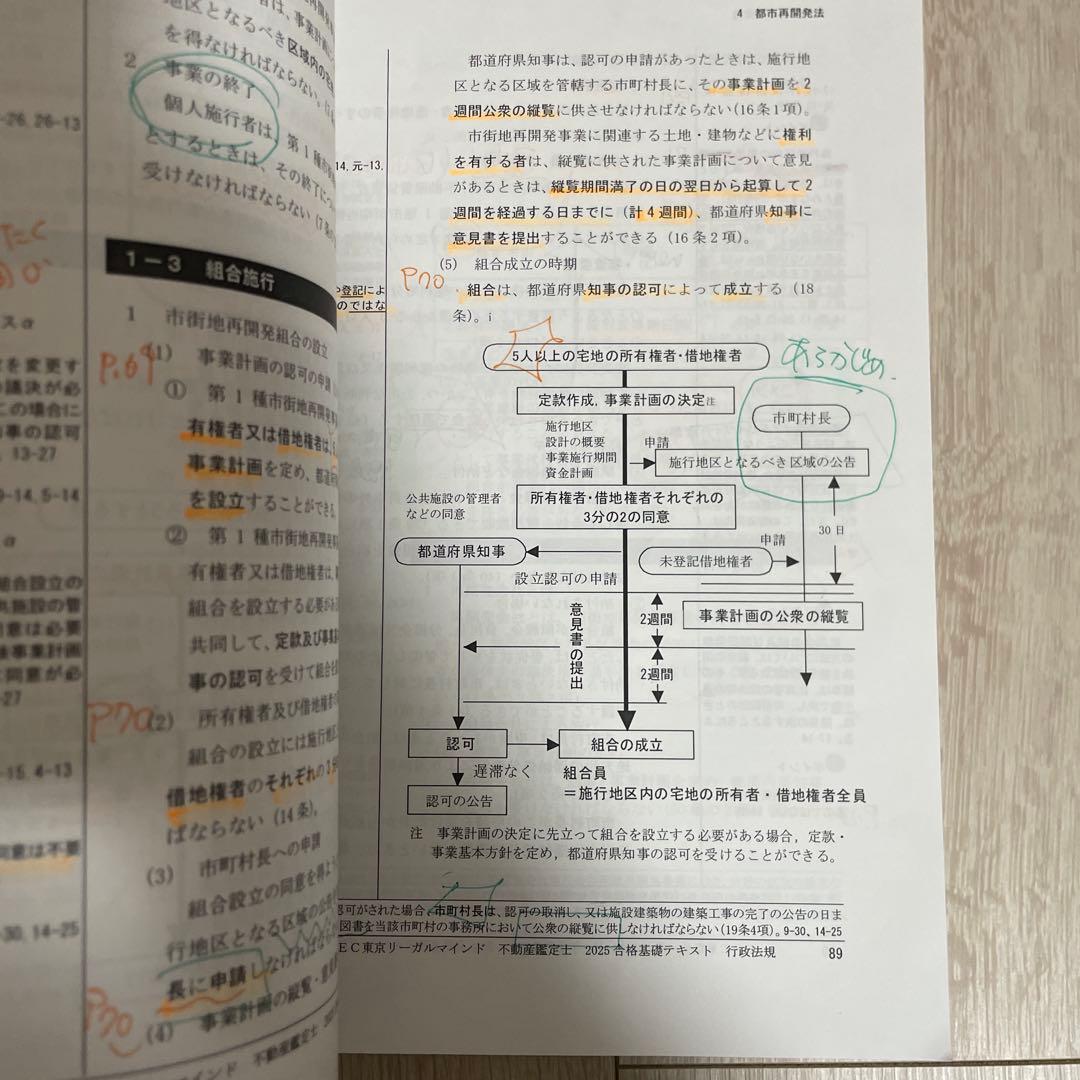 区となるべき区域内の宅
を得なければならない。
2 事業の終了
個人施行者は、第1種市
とするときは、その終了につ
受けなければならない(7条
-26, 26-13
1-3 組合施行
1 市街地再開発組合の設立
P.69
(1) 事業計画の認可の申請
① 第1種市街地再開発事
有権者又は借地権者は、5
事業計画を定め、都道
を設立することができる。
② 第1種市街地再開発
有権者又は借地権者は、
組合を設立する必要がある
共同して、定款及び事業基
事の認可を受けて組合を
P70
(2) 所有権者及び借地権者の
組合の設立には施行地区
借地権者のそれぞれの3分
ばならない(14条)。
(3) 市町村長への申請
組合設立の同意を得よう
行地区となる区域の公告
長に申請しなければならな
P70
(4) 事業計画の縦覧・意見
を変更す
議決が必
この場合に
事の認可
13-27
9-14, 5-14
組合設立の
共施設の管
同意は必要
事業計画
同意が必
-27
-15, 4-13
同意は不要
9-30, 14-25
不動産鑑定士
4 都市再開発法
都道府県知事は、認可の申請があったときは、施行地
区となる区域を管轄する市町村長に、その事業計画を2
週間公衆の縦覧に供させなければならない(16条1項)。
市街地再開発事業に関連する土地・建物などに権利
14, 元-13.
を有する者は、縦覧に供された事業計画について意見
があるときは、縦覧期間満了の日の翌日から起算して2
週間を経過する日までに(計4週間)、都道府県知事に
意見書を提出することができる(16条2項)。
(5) 組合成立の時期
P70
や登記によ
のではな
組合は、都道府県知事の認可によって成立する(18
条)。i
5人以上の宅地の所有権者・借地権者
あらかじめ.
定款作成,事業計画の決定注
市町村長
施行地区
設計の概要
事業施行期間
資金計画
申請
施行地区となるべき区域の公告
公共施設の管理者
などの同意
所有権者・借地権者それぞれの
3分の2の同意
30日
申請
都道府県知事
未登記借地権者
設立認可の申請
意見書の提出
2週間
事業計画の公衆の縦覧
2週間
認可
組合の成立
遅滞なく
組合員
=施行地区内の宅地の所有者・借地権者全員
認可の公告
注 事業計画の決定に先立って組合を設立する必要がある場合,定款・
事業基本方針を定め,都道府県知事の認可を受けることができる。
認可がされた場合、市町村長は、認可の取消し、又は施設建築物の建築工事の完了の公告の日ま
図書を当該市町村の事務所において公衆の縦覧に供しなければならない(19条4項)。9-30, 14-25
EC東京リーガルマインド 不動産鑑定士 2025合格基礎テキスト 行政法規
89